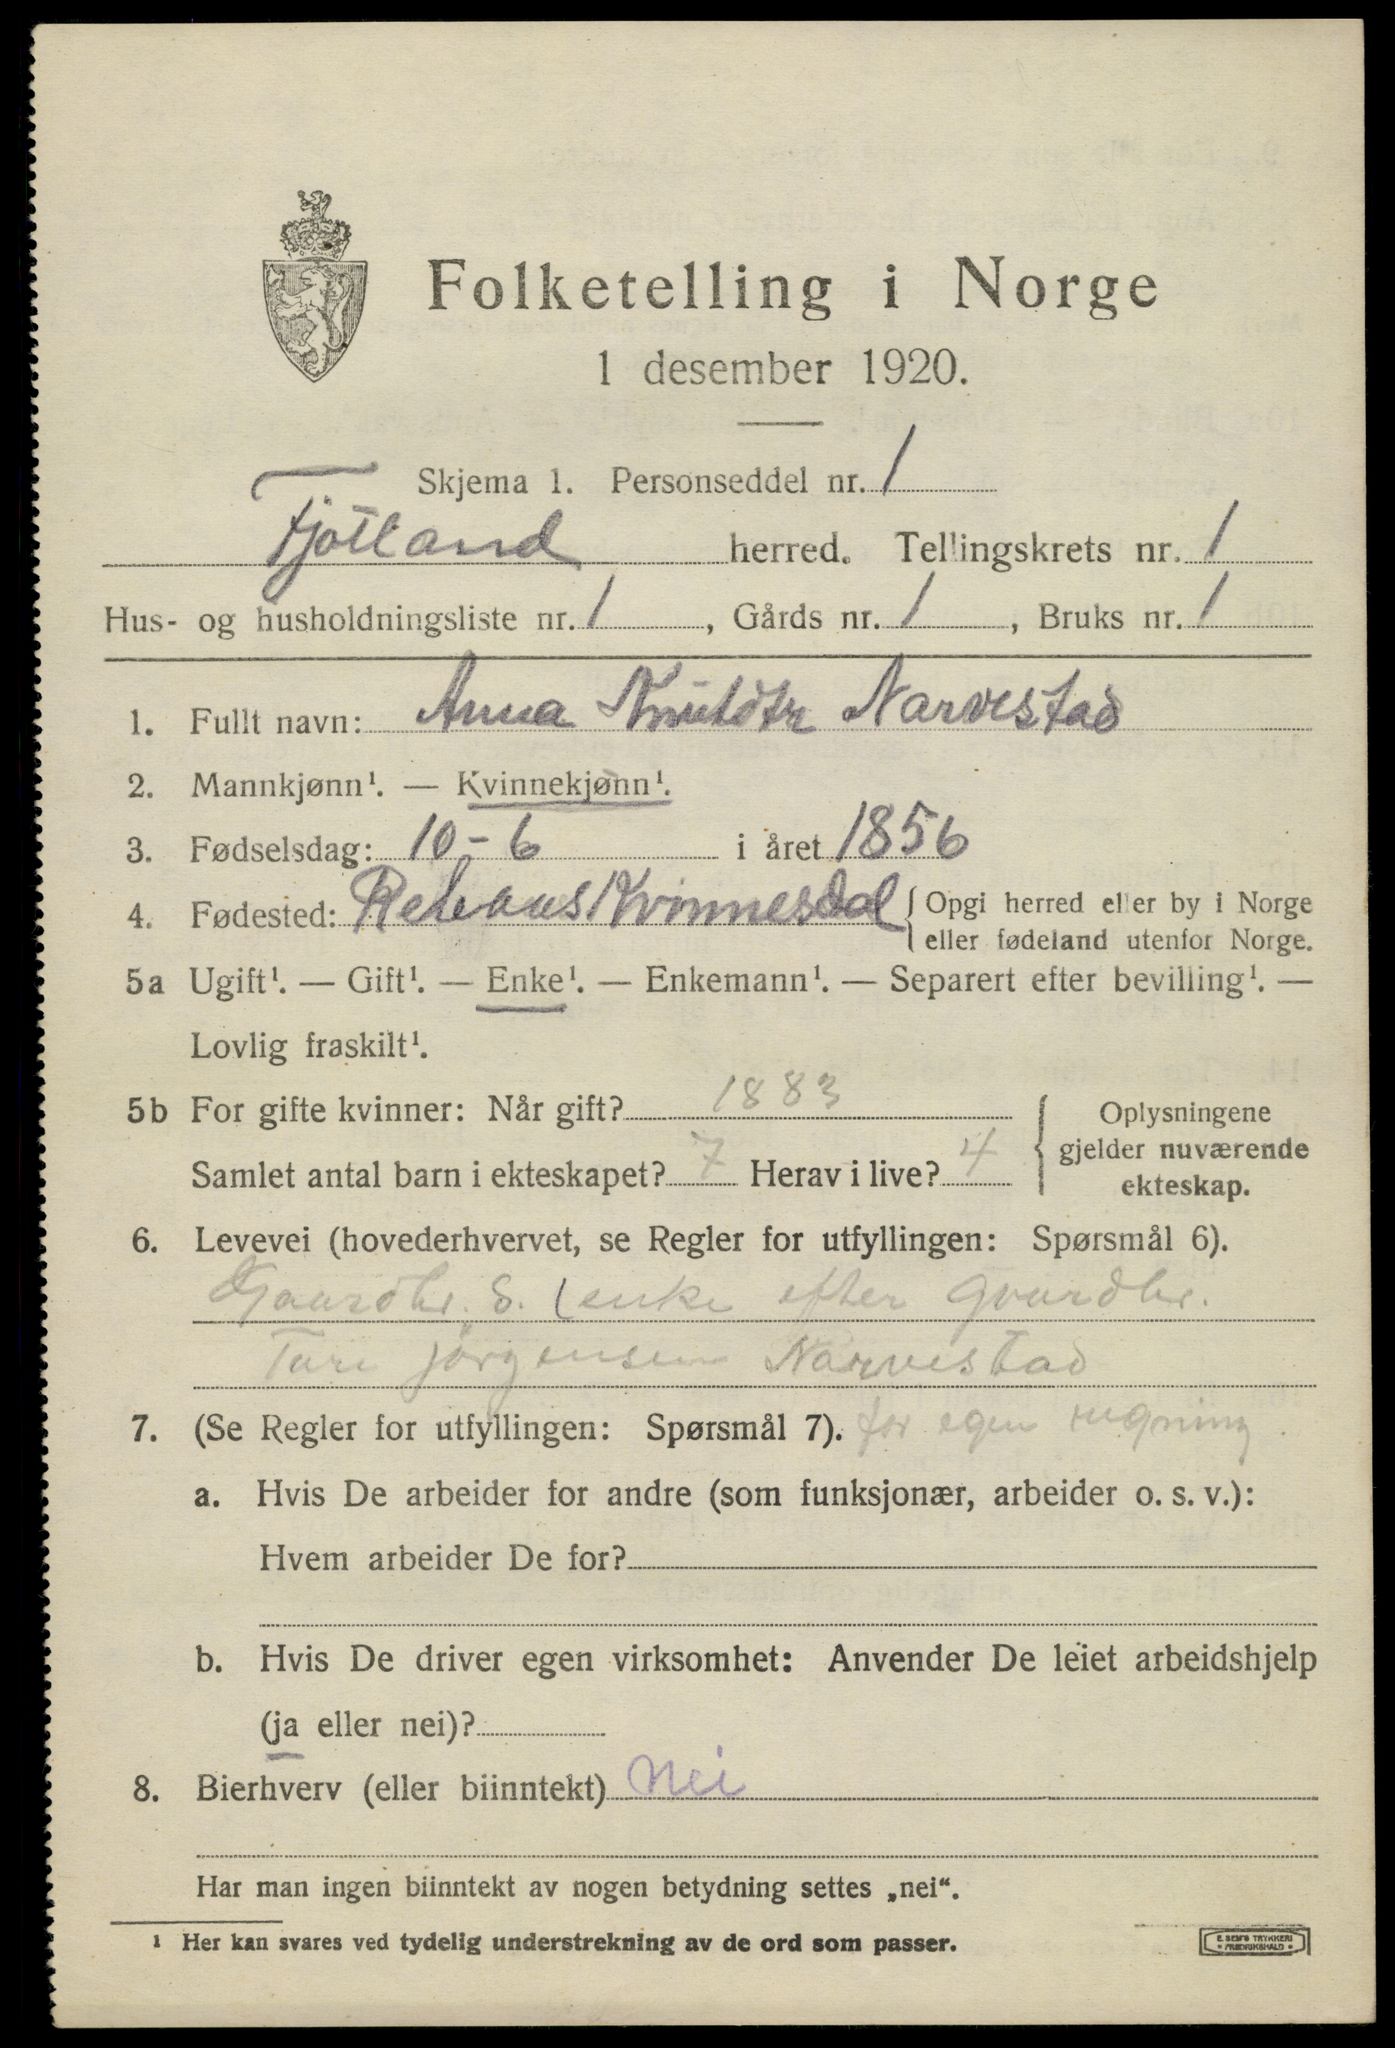 Folketelling i Norge
1 desember 1920.
Skjema 1. Personseddel nr. 1
Fjotland herred. Tellingskrets nr. 1
Hus- og husholdningsliste nr. 1, Gårds nr. 1, Bruks nr. 1
1. Fullt navn: Anna Knutdtr Narvestad
2. Mannkjønn¹. — Kvinnekjønn¹.
3. Fødselsdag: 10-6 i året 1856
4. Fødested: Kvinnesdal { Opgi herred eller by i Norge
eller fødeland utenfor Norge.
5a Ugift¹. — Gift¹. — Enke¹. — Enkemann¹. — Separert efter bevilling¹. —
Lovlig fraskilt¹.
5b For gifte kvinner: Når gift? 1883
Samlet antal barn i ekteskapet? 7 Herav i live? 4
Oplysningene
gjelder nuværende
ekteskap.
6. Levevei (hovederhvervet, se Regler for utfyllingen: Spørsmål 6).
Gaardbr. S. (enke efter Gaardbr.
Jørgensen Narvestad
7. (Se Regler for utfyllingen: Spørsmål 7). for egen regning
a. Hvis De arbeider for andre (som funksjonær, arbeider o. s. v.):
Hvem arbeider De for?
b. Hvis De driver egen virksomhet: Anvender De leiet arbeidshjelp
(ja eller nei)?
8. Bierhverv (eller biinntekt) Nei
Har man ingen biinntekt av nogen betydning settes „nei“.
¹ Her kan svares ved tydelig understrekning av de ord som passer.
E. SEM'S TRYKKERI
• FREDRIKSHALD •